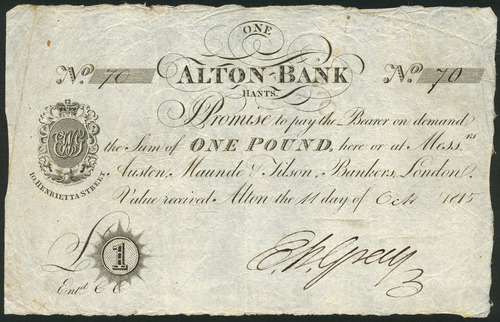 ONE
No. 70 ALTON BANK No. 70
HANTS.
I Promise to pay the Bearer on demand
the Sum of ONE POUND, here or at Mess.rs
Austen, Maunde & Tilson, Bankers, London.
Value received Alton the 11 day of Oct. 1815
10 HENRIETTA STREET.
£ 1
Ent.d